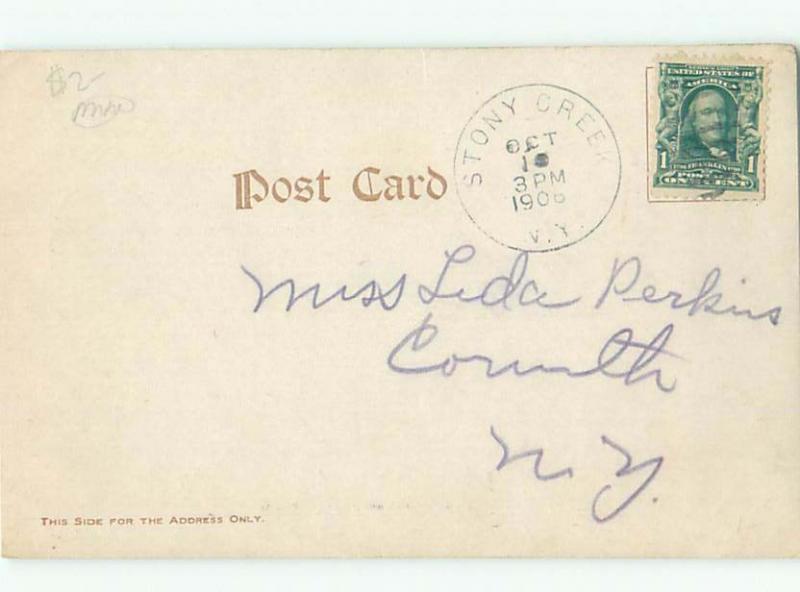 $2-
STONY CREEK
OCT
3 PM
1906
N.Y.
UNITED STATES OF
AMERICA
1 FRANKLIN 1
POSTAGE
ONE CENT
Post Card
Miss Leda Perkins
Corinth
N.Y.
THIS SIDE FOR THE ADDRESS ONLY.